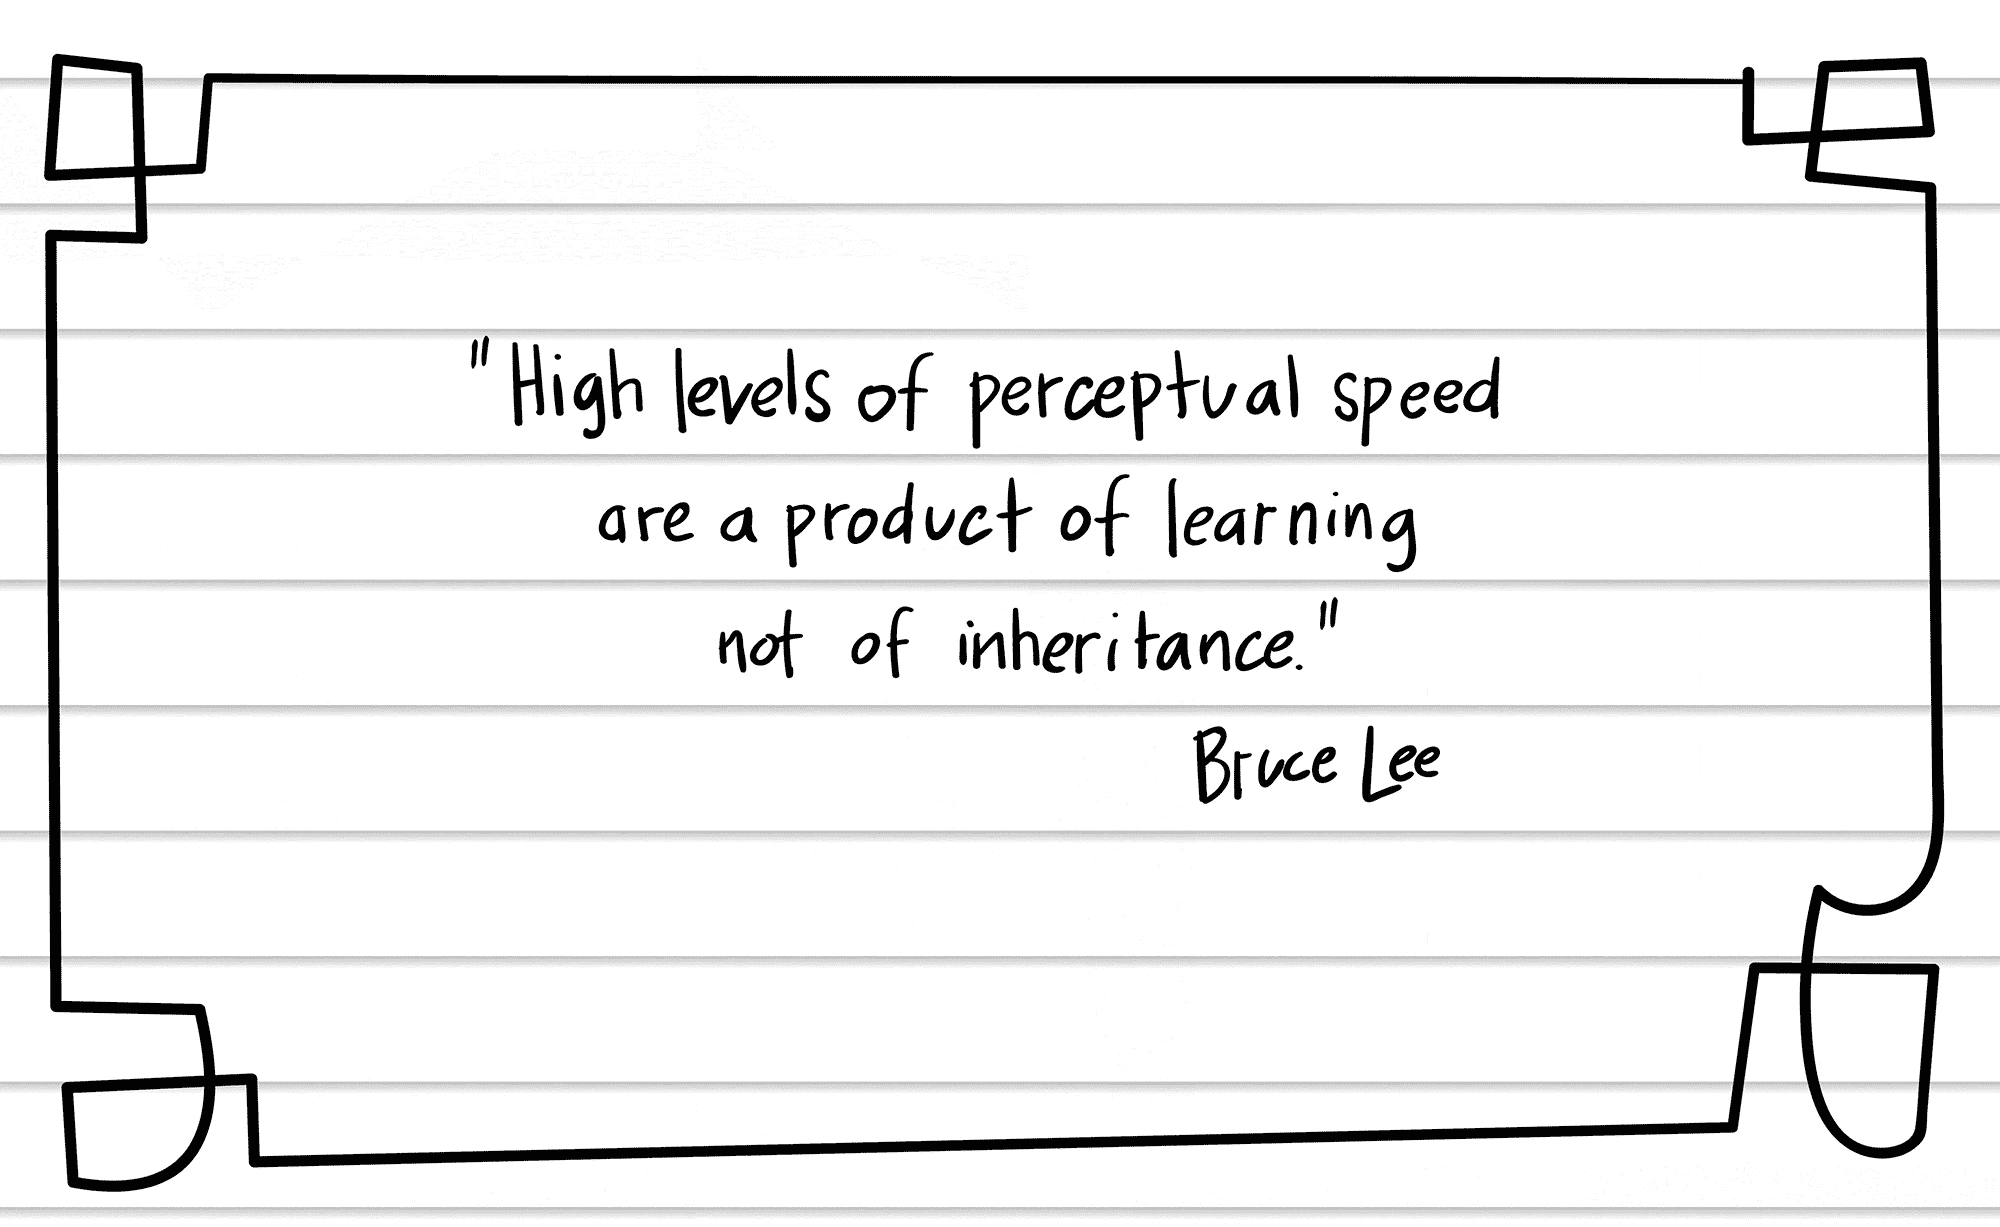 "High levels of perceptual speed
are a product of learning
not of inheritance."
Bruce Lee